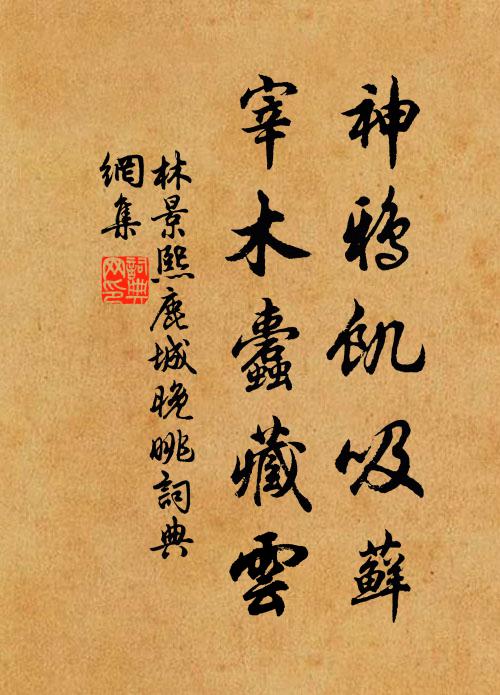 神鴉飢吸蘚
宰木蠹藏雲
林景熙鹿城晚眺詞典
網集
詞典
网印